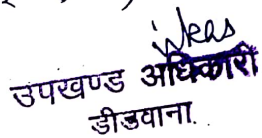 उपखण्ड अधिकारी
डीडवाना.